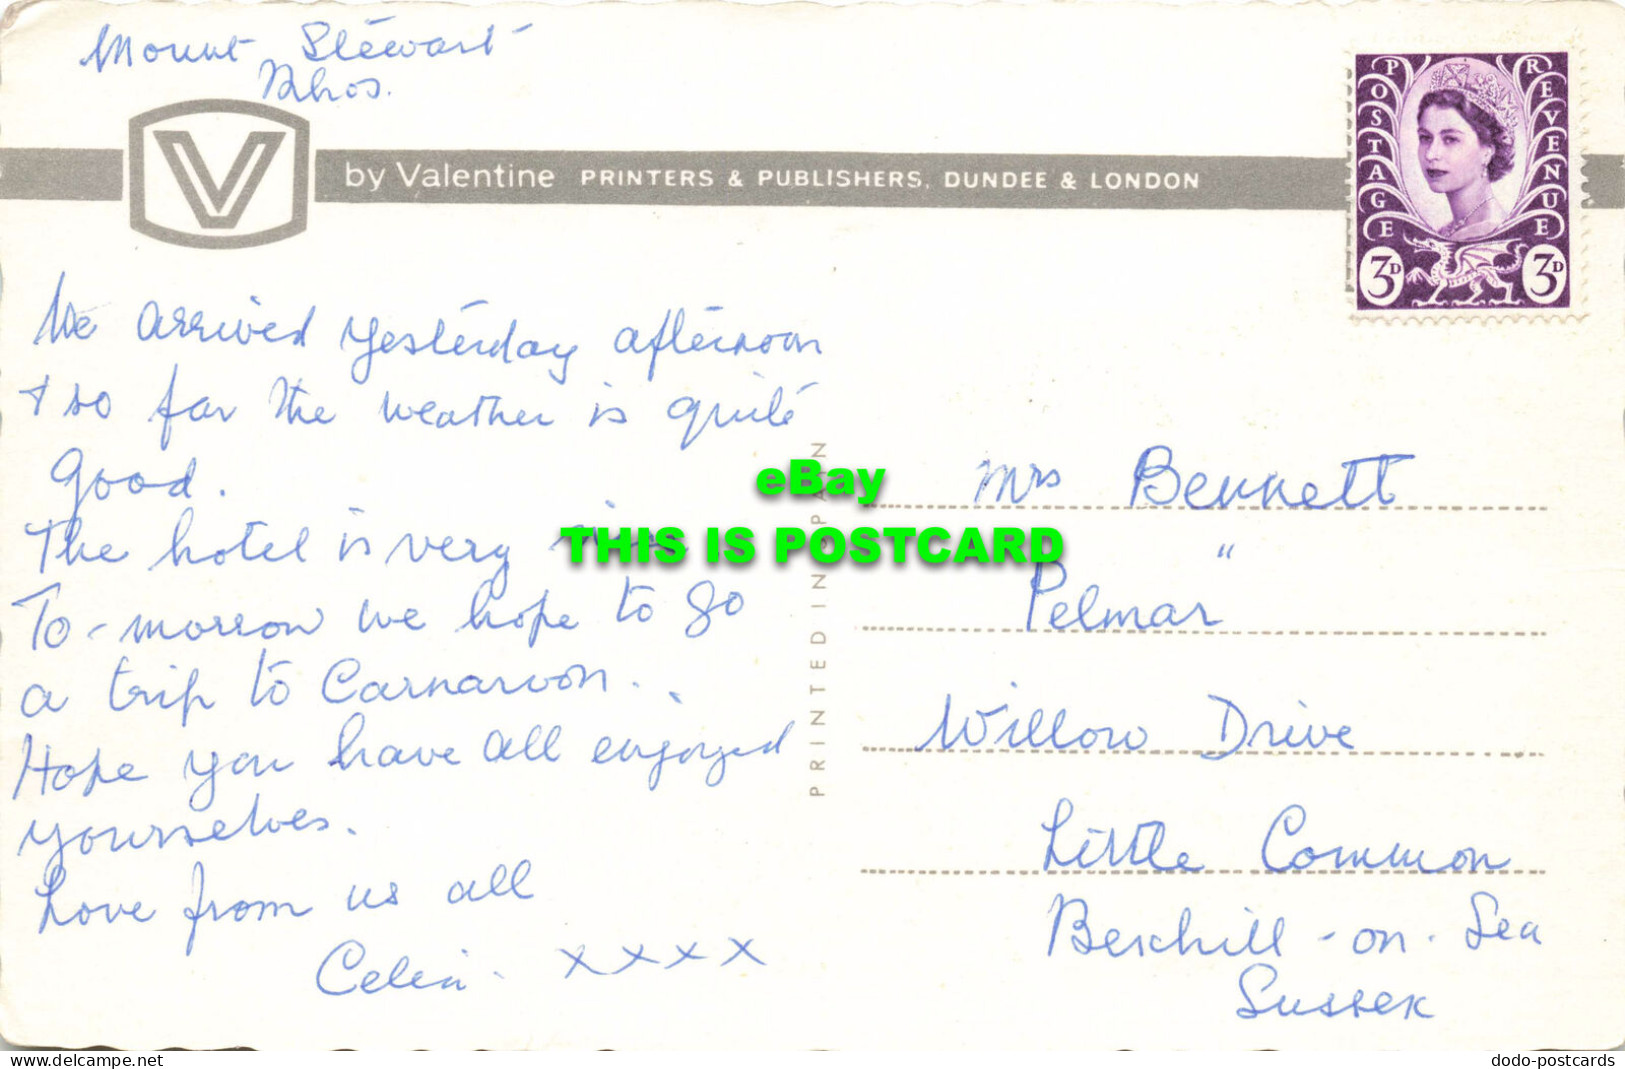 Mount Stewart
Rhos.
by Valentine PRINTERS & PUBLISHERS, DUNDEE & LONDON
POSTAGE REVENUE
3D 3D
We arrived yesterday afternoon
& so far the weather is quite
good.
The hotel is very
To-morrow we hope to go
a trip to Carnarvon.
Hope you have all enjoyed
yourselves.
Love from us all
Celia. xxxx
PRINTED IN SPAIN
eBay
THIS IS POSTCARD
Mrs Bennett
Pelmar"
Willow Drive
Little Common
Bexhill-on-Sea
Sussex
delcampe.net
dodo-postcards